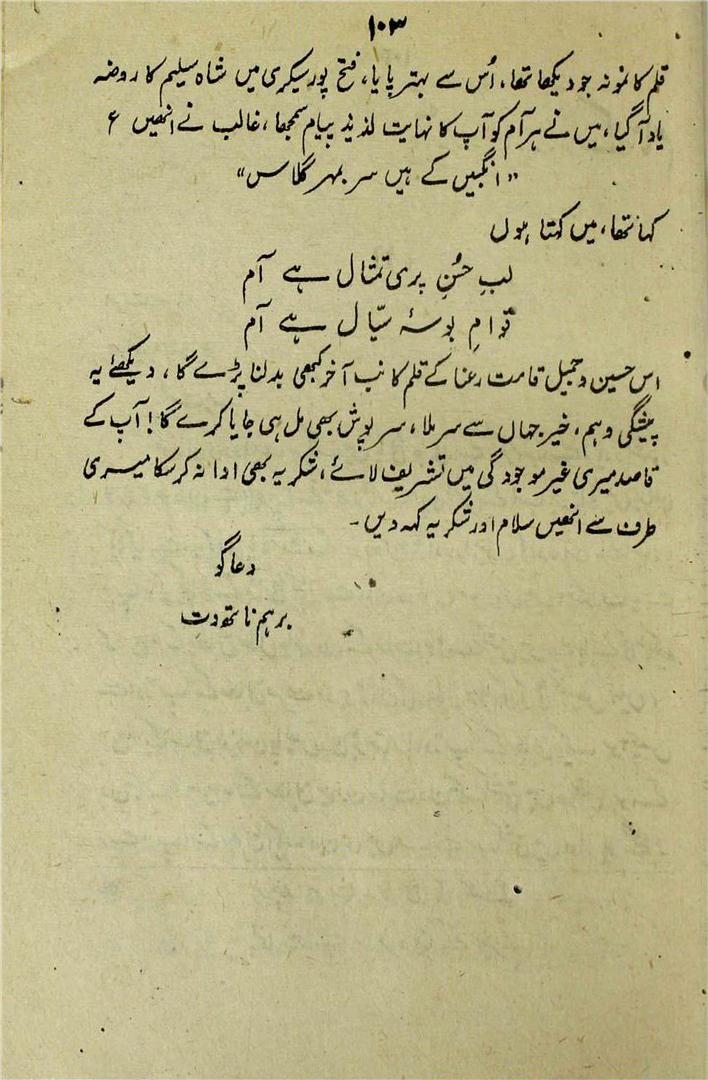 ۱۰۳
قلم کا نمونہ جو دیکھا تھا، اُس سے بہتر پایا، فتح پور سیکری میں شاہ سلیم کا روضہ
یاد آگیا، میں نے ہر آم کو آپ کا نہایت لذیذ پیام سمجھا، غالب نے انھیں ؏
"انگبیں کے ہیں سر بمہر گلاس"
کہا تھا، میں کہتا ہوں
لبِ حُسنِ پری تمثال ہے آم
قوامِ بوسۂ سیّال ہے آم
اس حسین و جمیل قامت رعنا کے قلم کا نب آخر کبھی بدلنا پڑے گا، دیکھئے یہ
پیشگی وہم، خیر جہاں سے سر ملا، سرپوش بھی مل ہی جایا کرے گا! آپ کے
قاصد میری غیر موجودگی میں تشریف لائے، شکریہ بھی ادا نہ کر سکا میری
طرف سے انھیں سلام اور شکریہ کہہ دیں۔
دعاگو
برہم ناتھ دت